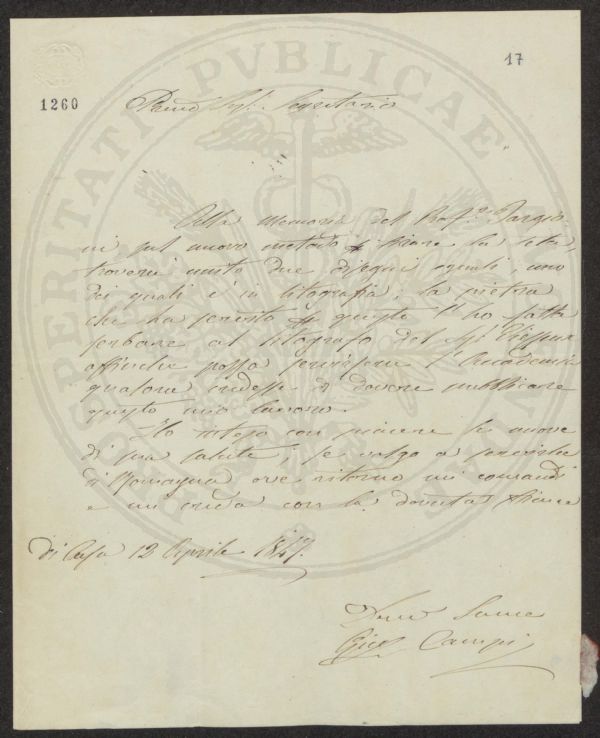 17
1260
Sig.r Segretario
Alla Memoria del Prof.re
ni sul nuovo metodo di filare la seta,
troverà unito due disegni eguali, uno
dei quali è in litografia; la pietra
che ha servito per questo l'ho fatta
serbare al litografo del Sig.
affinché possa servirsene l'Accademia
qualora credesse di dovere pubblicare
questo mio lavoro.
Ho inteso con piacere le nuove
di sua salute; se valgo a servirla
di Romagna ove ritorno mi comandi
e mi creda con la dovuta stima
Di Casa 12 Aprile 1847.
Servo
Gius. Campi
PROSPERITATI PVBLICAE